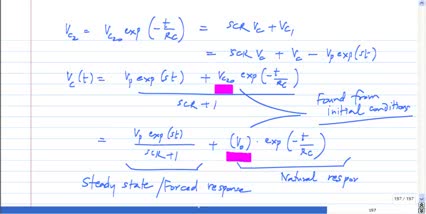 V_{c2} = V_{c20} exp(-t/RC) = SCR V_c + V_{c1}
= SCR V_c + V_c - V_p exp(st)
V_c(t) = V_p exp(st) / SCR+1 + V_{c20} exp(-t/RC)
Found from
initial conditions
= V_p exp(st) / SCR+1 + (V_0) · exp(-t/RC)
Steady state / Forced response
Natural respor
197 / 197
197